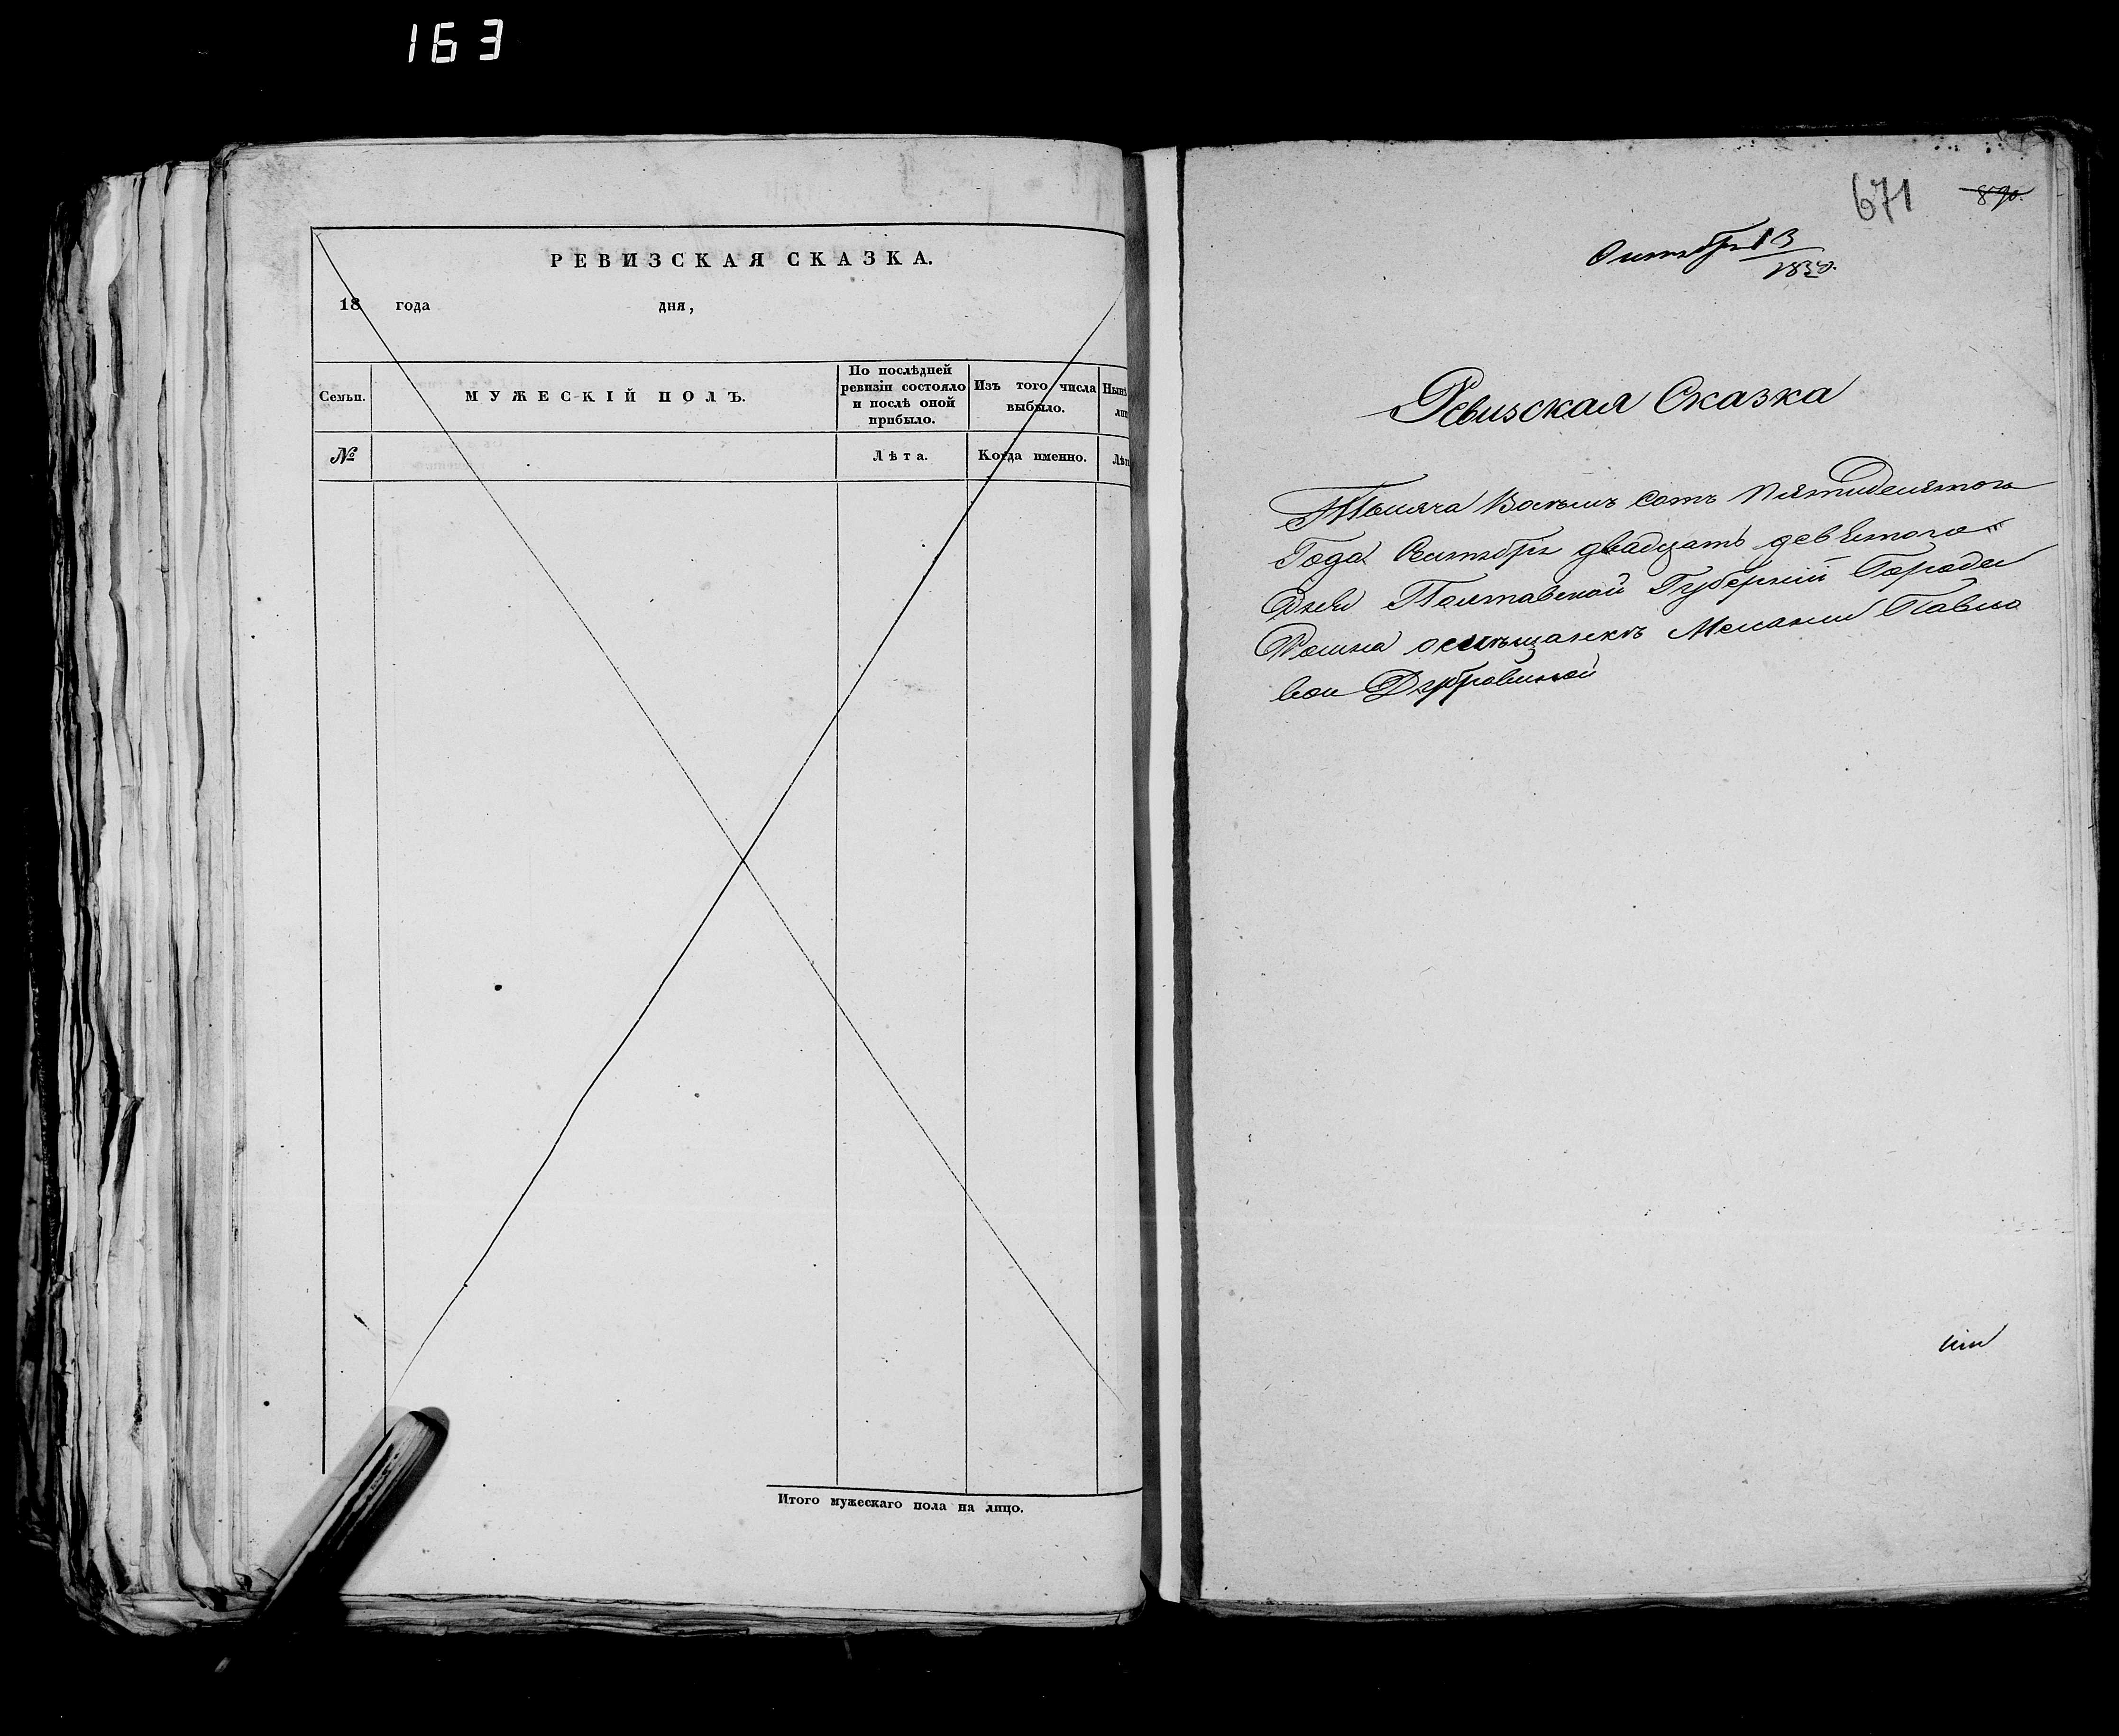 163
РЕВИЗСКАЯ СКАЗКА.
18 года дня,
Семьи.
МУЖЕСКІЙ ПОЛЪ.
По послѣдней
ревизіи состояло
и послѣ оной
прибыло.
Изъ того числа
выбыло.
Нынѣ
№
Лѣта.
Когда именно.
Лѣт
Итого мужескаго пола на лицо.
671 890.
Октября 13
1850.
Ревизская Сказка
Тысяча Восемь сотъ пятидесятого
Года Октября двадцать девятого
Дня Полтавской Губерніи Города
Ромна о мѣщанкѣ Меланіи Павло
вои Дубровиной